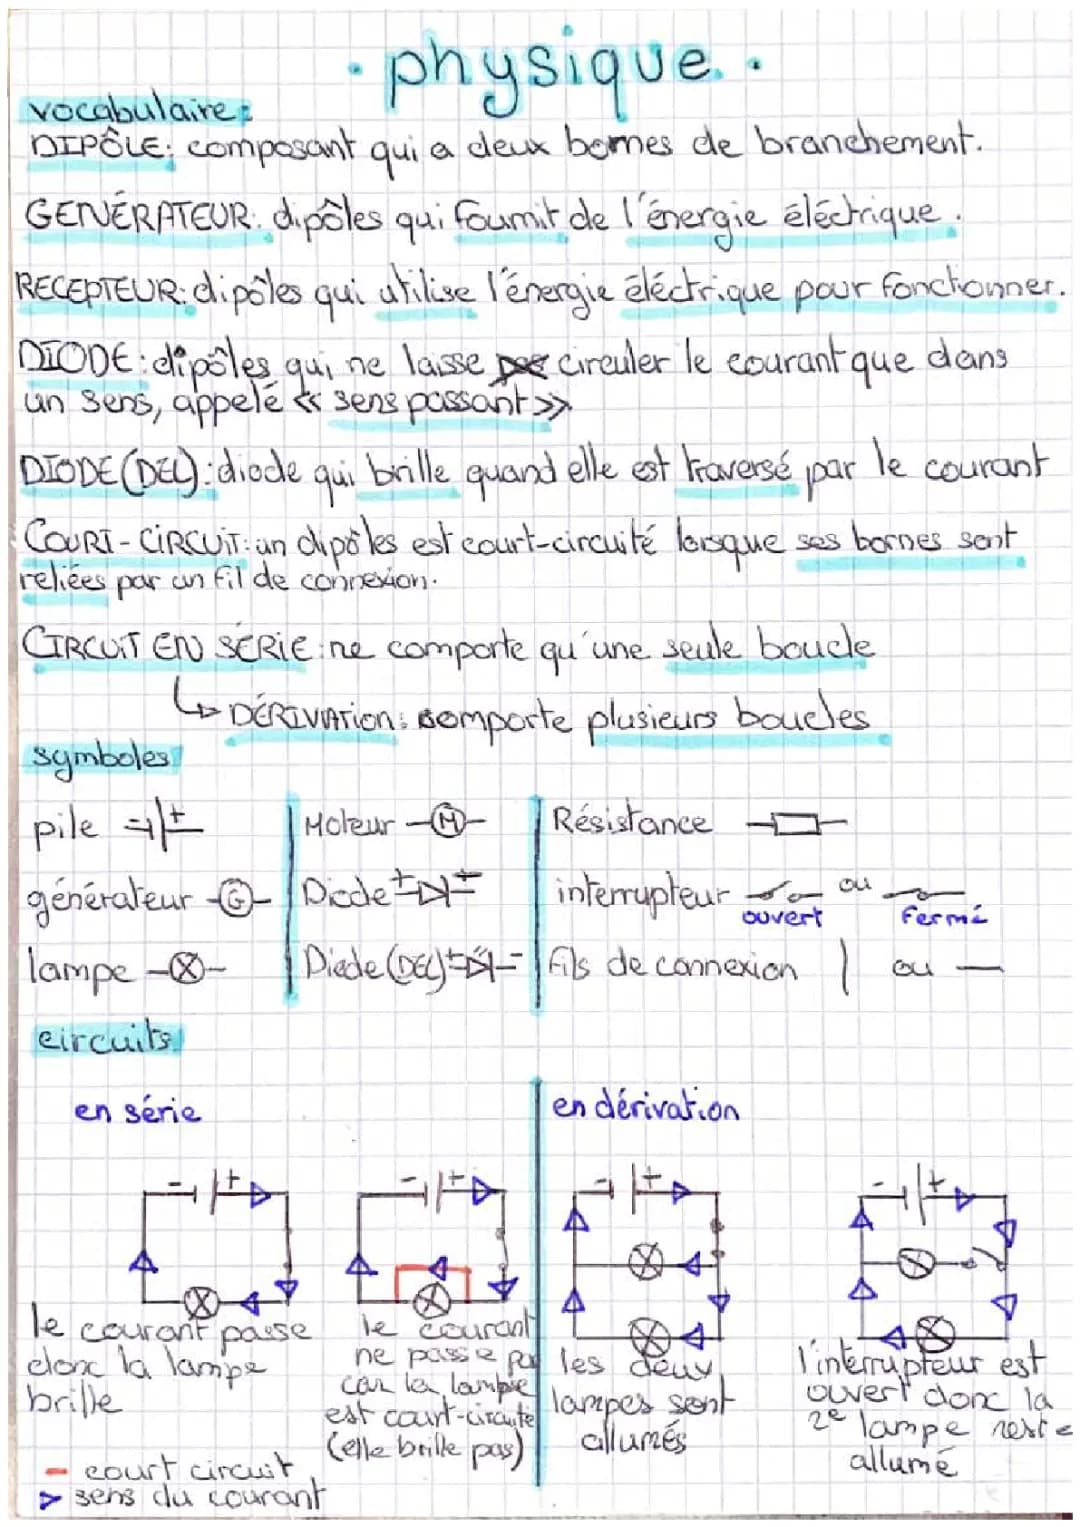 physique.
vocabulaire:
DIPÔLE: composant qui a deux bornes de branchement.
GENÉRATEUR: dipôles qui fournit de l'énergie éléctrique.
RECEPTEUR: dipôles qui utilise l'énergie éléctrique pour fonctionner.
DIODE: dipôles qui ne laisse circuler le courant que dans
un sens, appelé « sens passant »
DIODE (DEL): diode qui brille quand elle est traversé par le courant
COURT-CIRCUIT: un dipôles est court-circuité lorsque ses bornes sont
reliées par un fil de connexion.
CIRCUIT EN SÉRIE: ne comporte qu'une seule boucle
↳ DÉRIVATION: comporte plusieurs boucles
symboles
pile - +
Moteur M
Résistance
générateur G
Diode + -
interrupteur ou
ouvert fermé
lampe
Diode (DEL) + -
fils de connexion | ou —
circuits
en série
en dérivation
- +
- +
- +
- +
le courant passe
donc la lampe
brille
le courant
ne passe pas
car la lampe
est court-circuité
(elle brille pas)
les deux
lampes sont
allumés
l'interrupteur est
ouvert donc la
2e lampe reste
allumé
- court circuit
▷ sens du courant